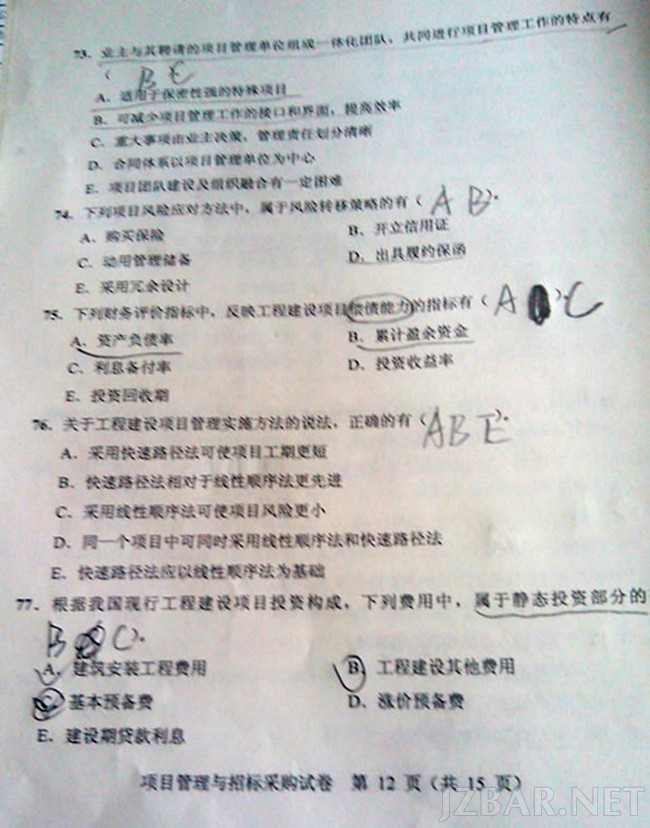 73. 业主与其聘请的项目管理单位组成一体化团队，共同进行项目管理工作的特点有
( B E
A. 适用于保密性强的特殊项目
B. 可减少项目管理工作的接口和界面，提高效率
C. 重大事项由业主决策，管理责任划分清晰
D. 合同体系以项目管理单位为中心
E. 项目团队建设及组织融合有一定困难
74. 下列项目风险应对方法中，属于风险转移策略的有 ( A B )。
A. 购买保险 B. 开立信用证
C. 动用管理储备 D. 出具履约保函
E. 采用冗余设计
75. 下列财务评价指标中，反映工程建设项目偿债能力的指标有 ( A ) C
A. 资产负债率 B. 累计盈余资金
C. 利息备付率 D. 投资收益率
E. 投资回收期
76. 关于工程建设项目管理实施方法的说法，正确的有 ( ABE )。
A. 采用快速路径法可使项目工期更短
B. 快速路径法相对于线性顺序法更先进
C. 采用线性顺序法可使项目风险更小
D. 同一个项目中可同时采用线性顺序法和快速路径法
E. 快速路径法应以线性顺序法为基础
77. 根据我国现行工程建设项目投资构成，下列费用中，属于静态投资部分的
B C )。
A. 建筑安装工程费用 B. 工程建设其他费用
C. 基本预备费 D. 涨价预备费
E. 建设期贷款利息
项目管理与招标采购试卷 第 12 页（共 15 页）
JZBAR.NET